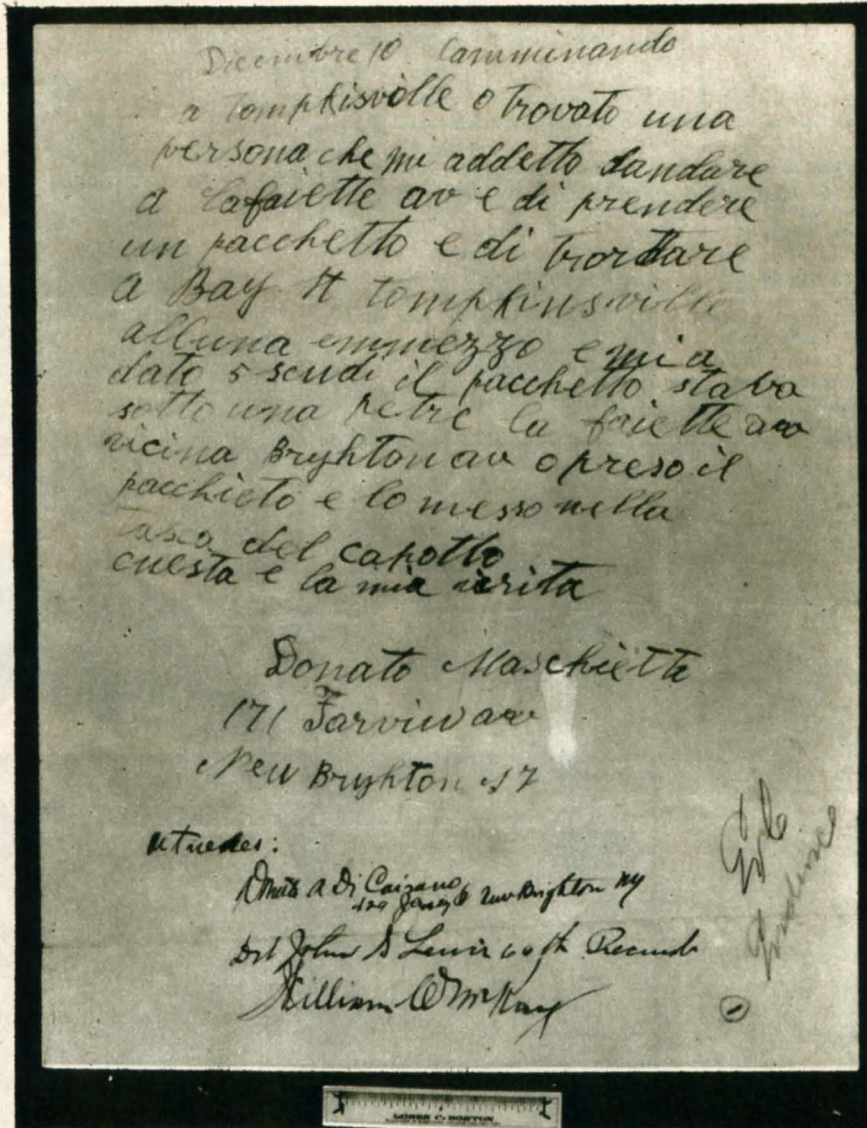 Dicembre 10 Camminando
a tompkisville o trovato una
persona che mi addetto dandare
a lafaiette av e di prendere
un pacchetto e di trortare
a Bay St tompkinsville
alluna emmezzo e mi a
dato 5 scudi il pacchetto stava
sotto una petre la faiette av
vicina Bryhton av o preso il
pacchieto e lo messo nella
tasca del capotto
cuesta e la mia verita
Donato Maschiette
171 Farview av
New Bryhton
Witnesses:
Donato A Di Caizano
New Brighton NY
Det John B Lewis 60th Precinct
William McKay
Evidence
1
LOREN C. HORTON